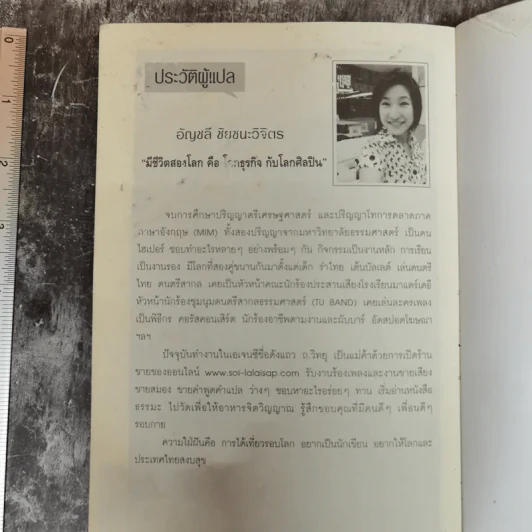 ประวัติผู้แปล
อัญชลี ชัยชนะวิจิตร
“มีชีวิตสองโลก คือ โลกธุรกิจ กับโลกศิลปิน”
จบการศึกษาปริญญาตรีเศรษฐศาสตร์ และปริญญาโทการตลาดภาค
ภาษาอังกฤษ (MIM) ทั้งสองปริญญาจากมหาวิทยาลัยธรรมศาสตร์ เป็นคน
ไฮเปอร์ ชอบทำอะไรหลายๆ อย่างพร้อมๆ กัน กิจกรรมเป็นงานหลัก การเรียน
เป็นงานรอง มีโลกที่สองคู่ขนานกันมาตั้งแต่เด็ก รำไทย เต้นบัลเลต์ เล่นดนตรี
ไทย ดนตรีสากล เคยเป็นหัวหน้าคณะนักร้องประสานเสียงโรงเรียนมาแตร์เดอี
หัวหน้านักร้องชุมนุมดนตรีสากลธรรมศาสตร์ (TU BAND) เคยเล่นละครเพลง
เป็นพิธีกร คอรัสคอนเสิร์ต นักร้องอาชีพตามงานและผับบาร์ อัดสปอตโฆษณา
ฯลฯ
ปัจจุบันทำงานในเอเจนซีชื่อดังแถว ถ.วิทยุ เป็นแม่ค้าด้วยการเปิดร้าน
ขายของออนไลน์ www.soi-lalaisap.com รับงานร้องเพลงและงานขายเสียง
ขายสมอง ขายคำพูดคำแปล ว่างๆ ชอบหาอะไรอร่อยๆ ทาน เริ่มอ่านหนังสือ
ธรรมะ ไปวัดเพื่อให้อาหารจิตวิญญาณ รู้สึกขอบคุณที่มีคนดีๆ เพื่อนดีๆ
รอบกาย
ความใฝ่ฝันคือ การได้เที่ยวรอบโลก อยากเป็นนักเขียน อยากให้โลกและ
ประเทศไทยสงบสุข
0
1
2
3